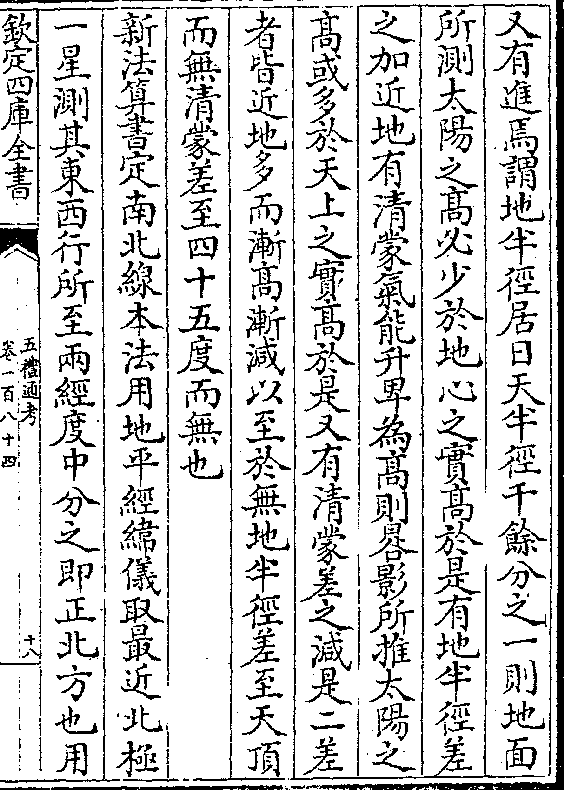 又有進焉謂地半徑居日天半徑千餘分之一則地面
所測太陽之髙必少於地心之實髙於是有地半徑差
之加近地有清蒙氣能升卑為髙則晷影所推太陽之
髙或多於天上之實髙於是又有清蒙差之減是二差
者皆近地多而漸髙漸減以至於無地半徑差至天頂
而無清蒙差至四十五度而無也
新法算書定南北線本法用地平經緯儀取最近北極
一星測其東西行所至兩經度中分之即正北方也用
欽定四庫全書
五禮通考
卷一百八十四
十八